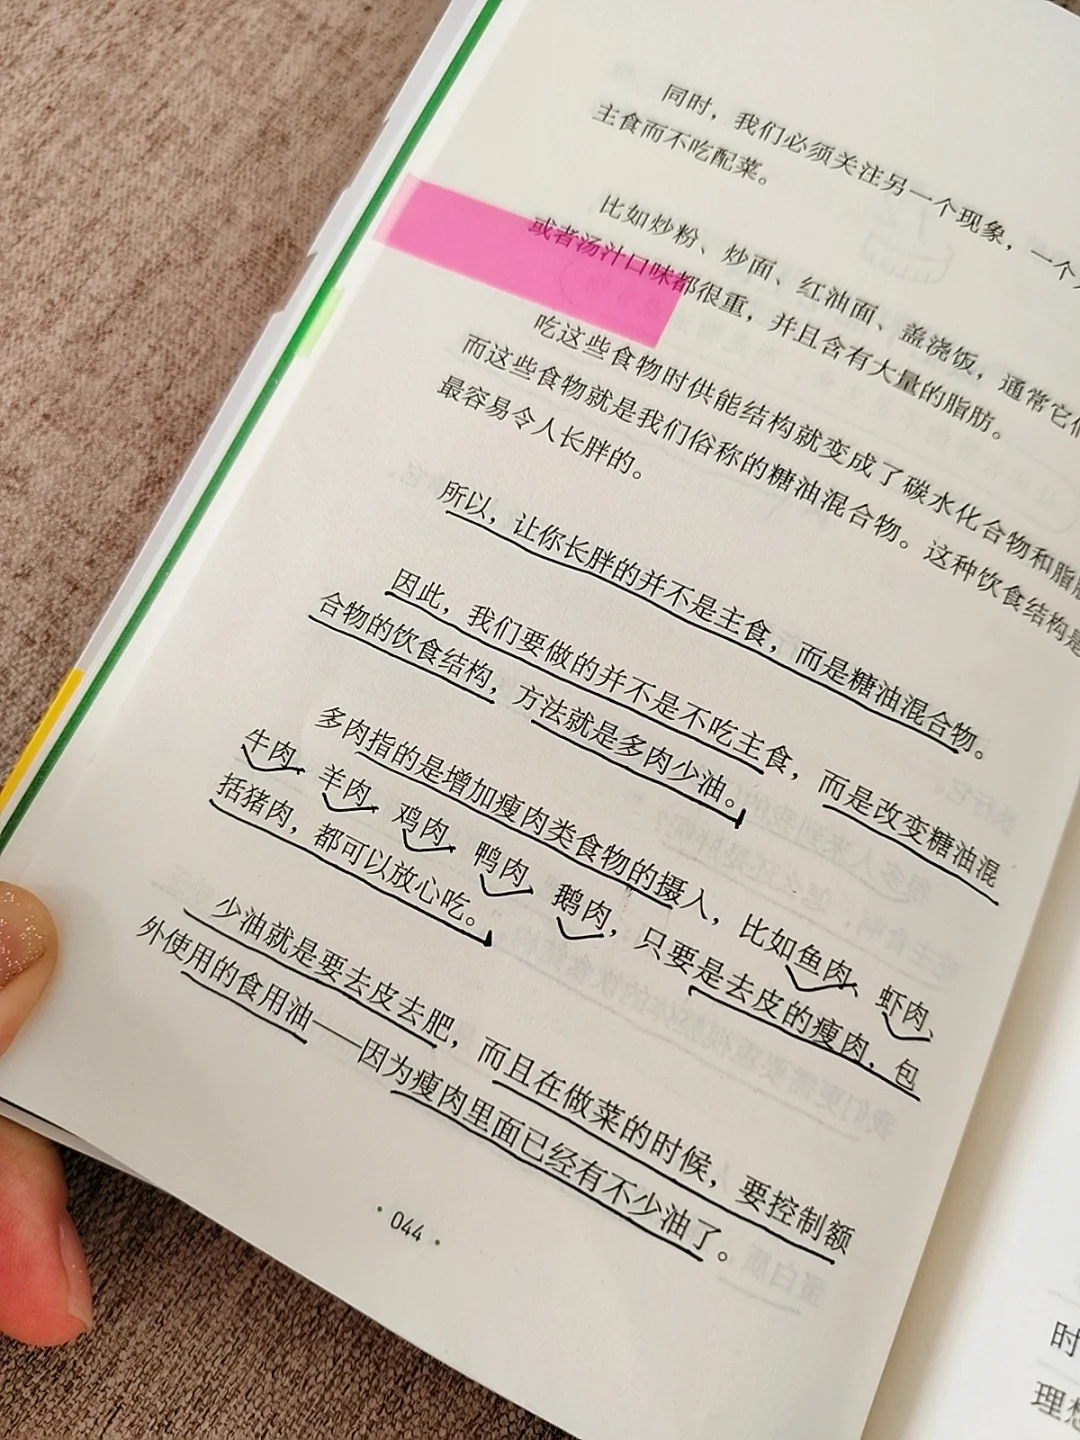 同时，我们必须关注另一个现象，一个
主食而不吃配菜。
比如炒粉、炒面、红油面、盖浇饭，通常它们
或者汤汁口味都很重，并且含有大量的脂肪。
吃这些食物时供能结构就变成了碳水化合物和脂肪
而这些食物就是我们俗称的糖油混合物。这种饮食结构是
最容易令人长胖的。
所以，让你长胖的并不是主食，而是糖油混合物。
因此，我们要做的并不是不吃主食，而是改变糖油混
合物的饮食结构，方法就是多肉少油。
多肉指的是增加瘦肉类食物的摄入，比如鱼肉、虾肉、
牛肉、羊肉、鸡肉、鸭肉、鹅肉，只要是去皮的瘦肉，包
括猪肉，都可以放心吃。
少油就是要去皮去肥，而且在做菜的时候，要控制额
外使用的食用油——因为瘦肉里面已经有不少油了。
·044·
时
理想